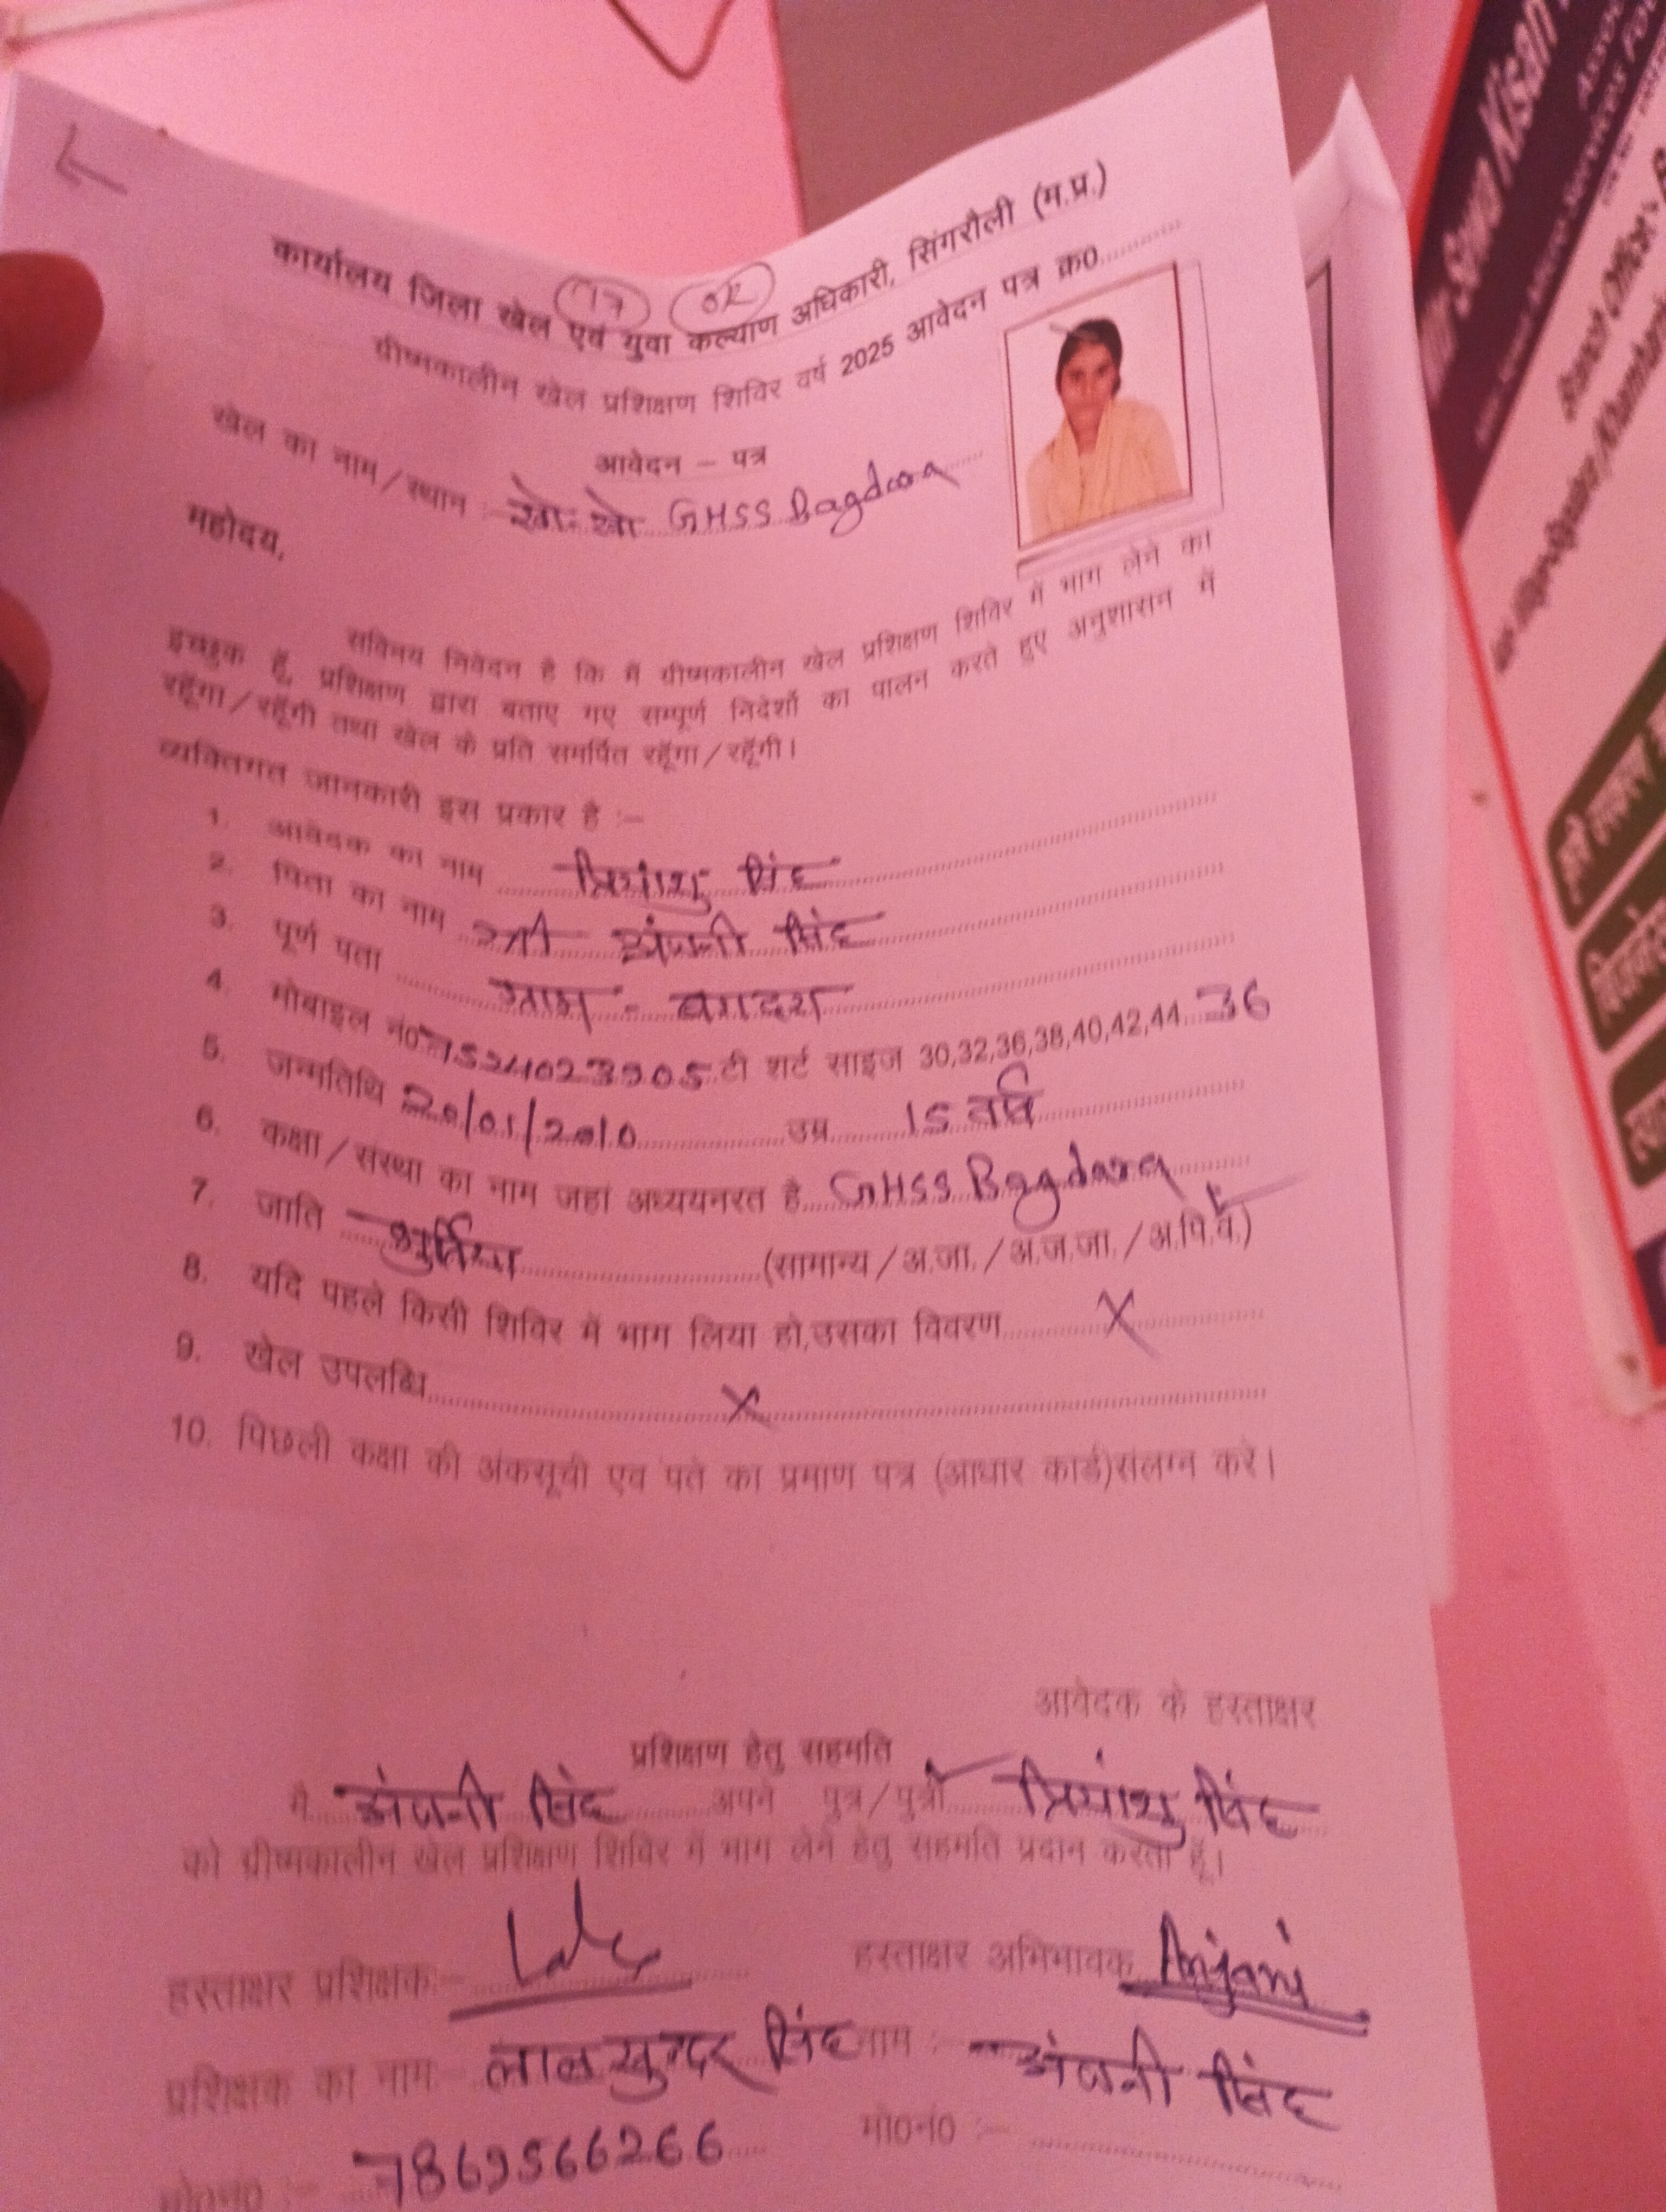 17 OK
कार्यालय जिला खेल एवं युवा कल्याण अधिकारी, सिंगरौली (म.प्र.)
ग्रीष्मकालीन खेल प्रशिक्षण शिविर वर्ष 2025 आवेदन पत्र क्र0
आवेदन – पत्र
खेल का नाम/स्थान :- खो-खो GHSS Bagdara
महोदय,
सविनय निवेदन है कि मैं ग्रीष्मकालीन खेल प्रशिक्षण शिविर में भाग लेने का
इच्छुक हूँ, प्रशिक्षण द्वारा बताए गए सम्पूर्ण निदेर्शों का पालन करते हुए अनुशासन में
रहूँगा/रहूँगी तथा खेल के प्रति समर्पित रहूँगा/रहूँगी।
व्यक्तिगत जानकारी इस प्रकार है :–
1. आवेदक का नाम प्रियांशु सिंह
2. पिता का नाम श्री अंजनी सिंह
3. पूर्ण पता ग्राम - बगदरा
4. मोबाइल नं0 7524023905 टी शर्ट साइज 30,32,36,38,40,42,44 36
5. जन्मतिथि 20/01/2010 उम्र 15 वर्ष
6. कक्षा/संस्था का नाम जहां अध्ययनरत है GHSS Bagdara
7. जाति (सामान्य/अ.जा./अ.ज.जा./अ.पि.व.)
8. यदि पहले किसी शिविर में भाग लिया हो,उसका विवरण X
9. खेल उपलब्धि X
10. पिछली कक्षा की अंकसूची एव पते का प्रमाण पत्र (आधार कार्ड)संलग्न करे।
आवेदक के हस्ताक्षर
प्रशिक्षण हेतु सहमति
मै अंजनी सिंह अपने पुत्र/पुत्री प्रियांशु सिंह
को ग्रीष्मकालीन खेल प्रशिक्षण शिविर में भाग लेने हेतु सहमति प्रदान करता हूँ।
हस्ताक्षर प्रशिक्षक:- हस्ताक्षर अभिभावक Anjani
प्रशिक्षक का नाम लाल सुन्दर सिंह नाम :- अंजनी सिंह
मो0नं0 :- 7869566266 मो0नं0 :-
Kisan